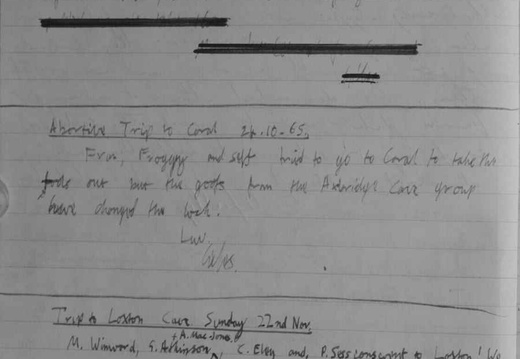 Abortive Trip to Coral 24.10.65.
Fran, Froggy and self tried to go to Coral to take the
tools out but the goofs from the Axbridge Cave group
have changed the lock.
Luv.
Trip to Loxton Cave Sunday 22nd Nov.
+ A. Mac-Jones.
M. Winward, G. Atkinson, C. Eley and, P. Sessions went to Loxton! We